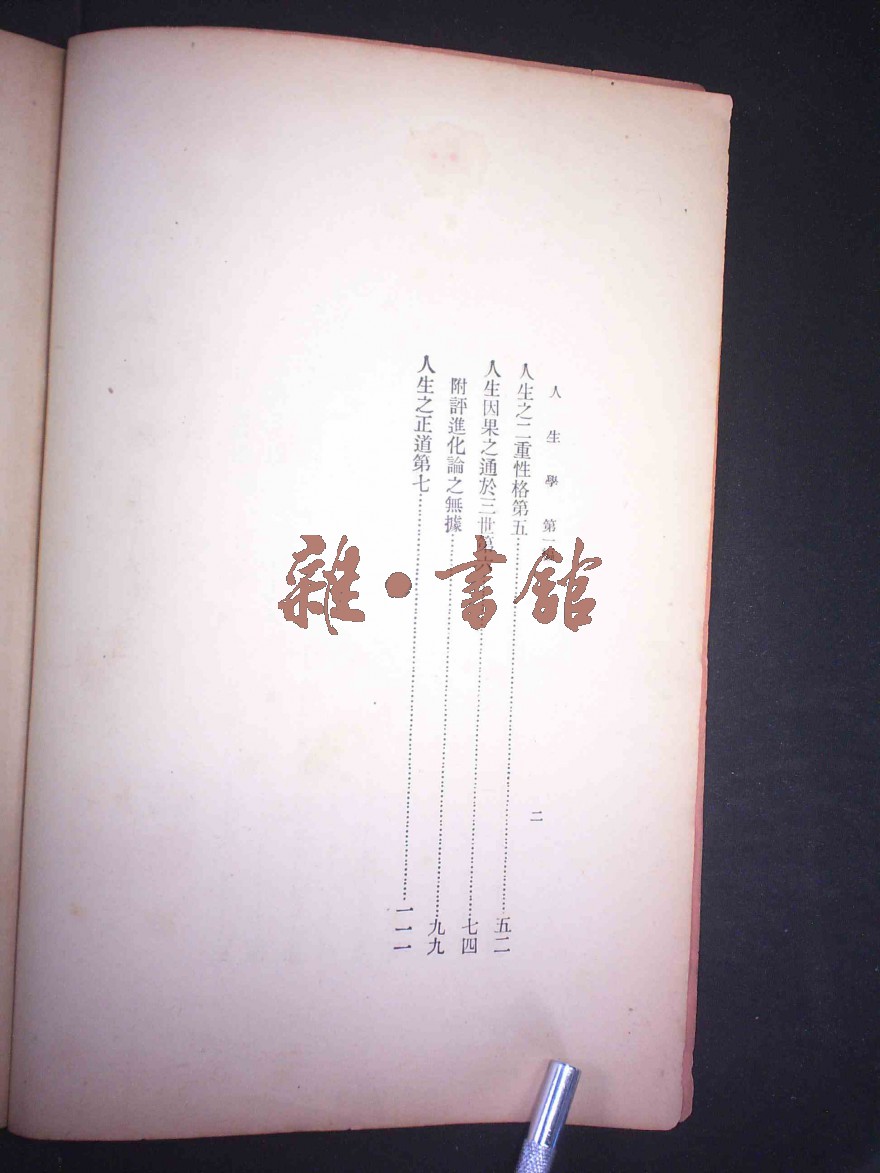 人生學 第一編
二
人生之二重性格第五……五二
人生因果之通於三世第六……七四
附評進化論之無據……九九
人生之正道第七……一一一
雜·書館